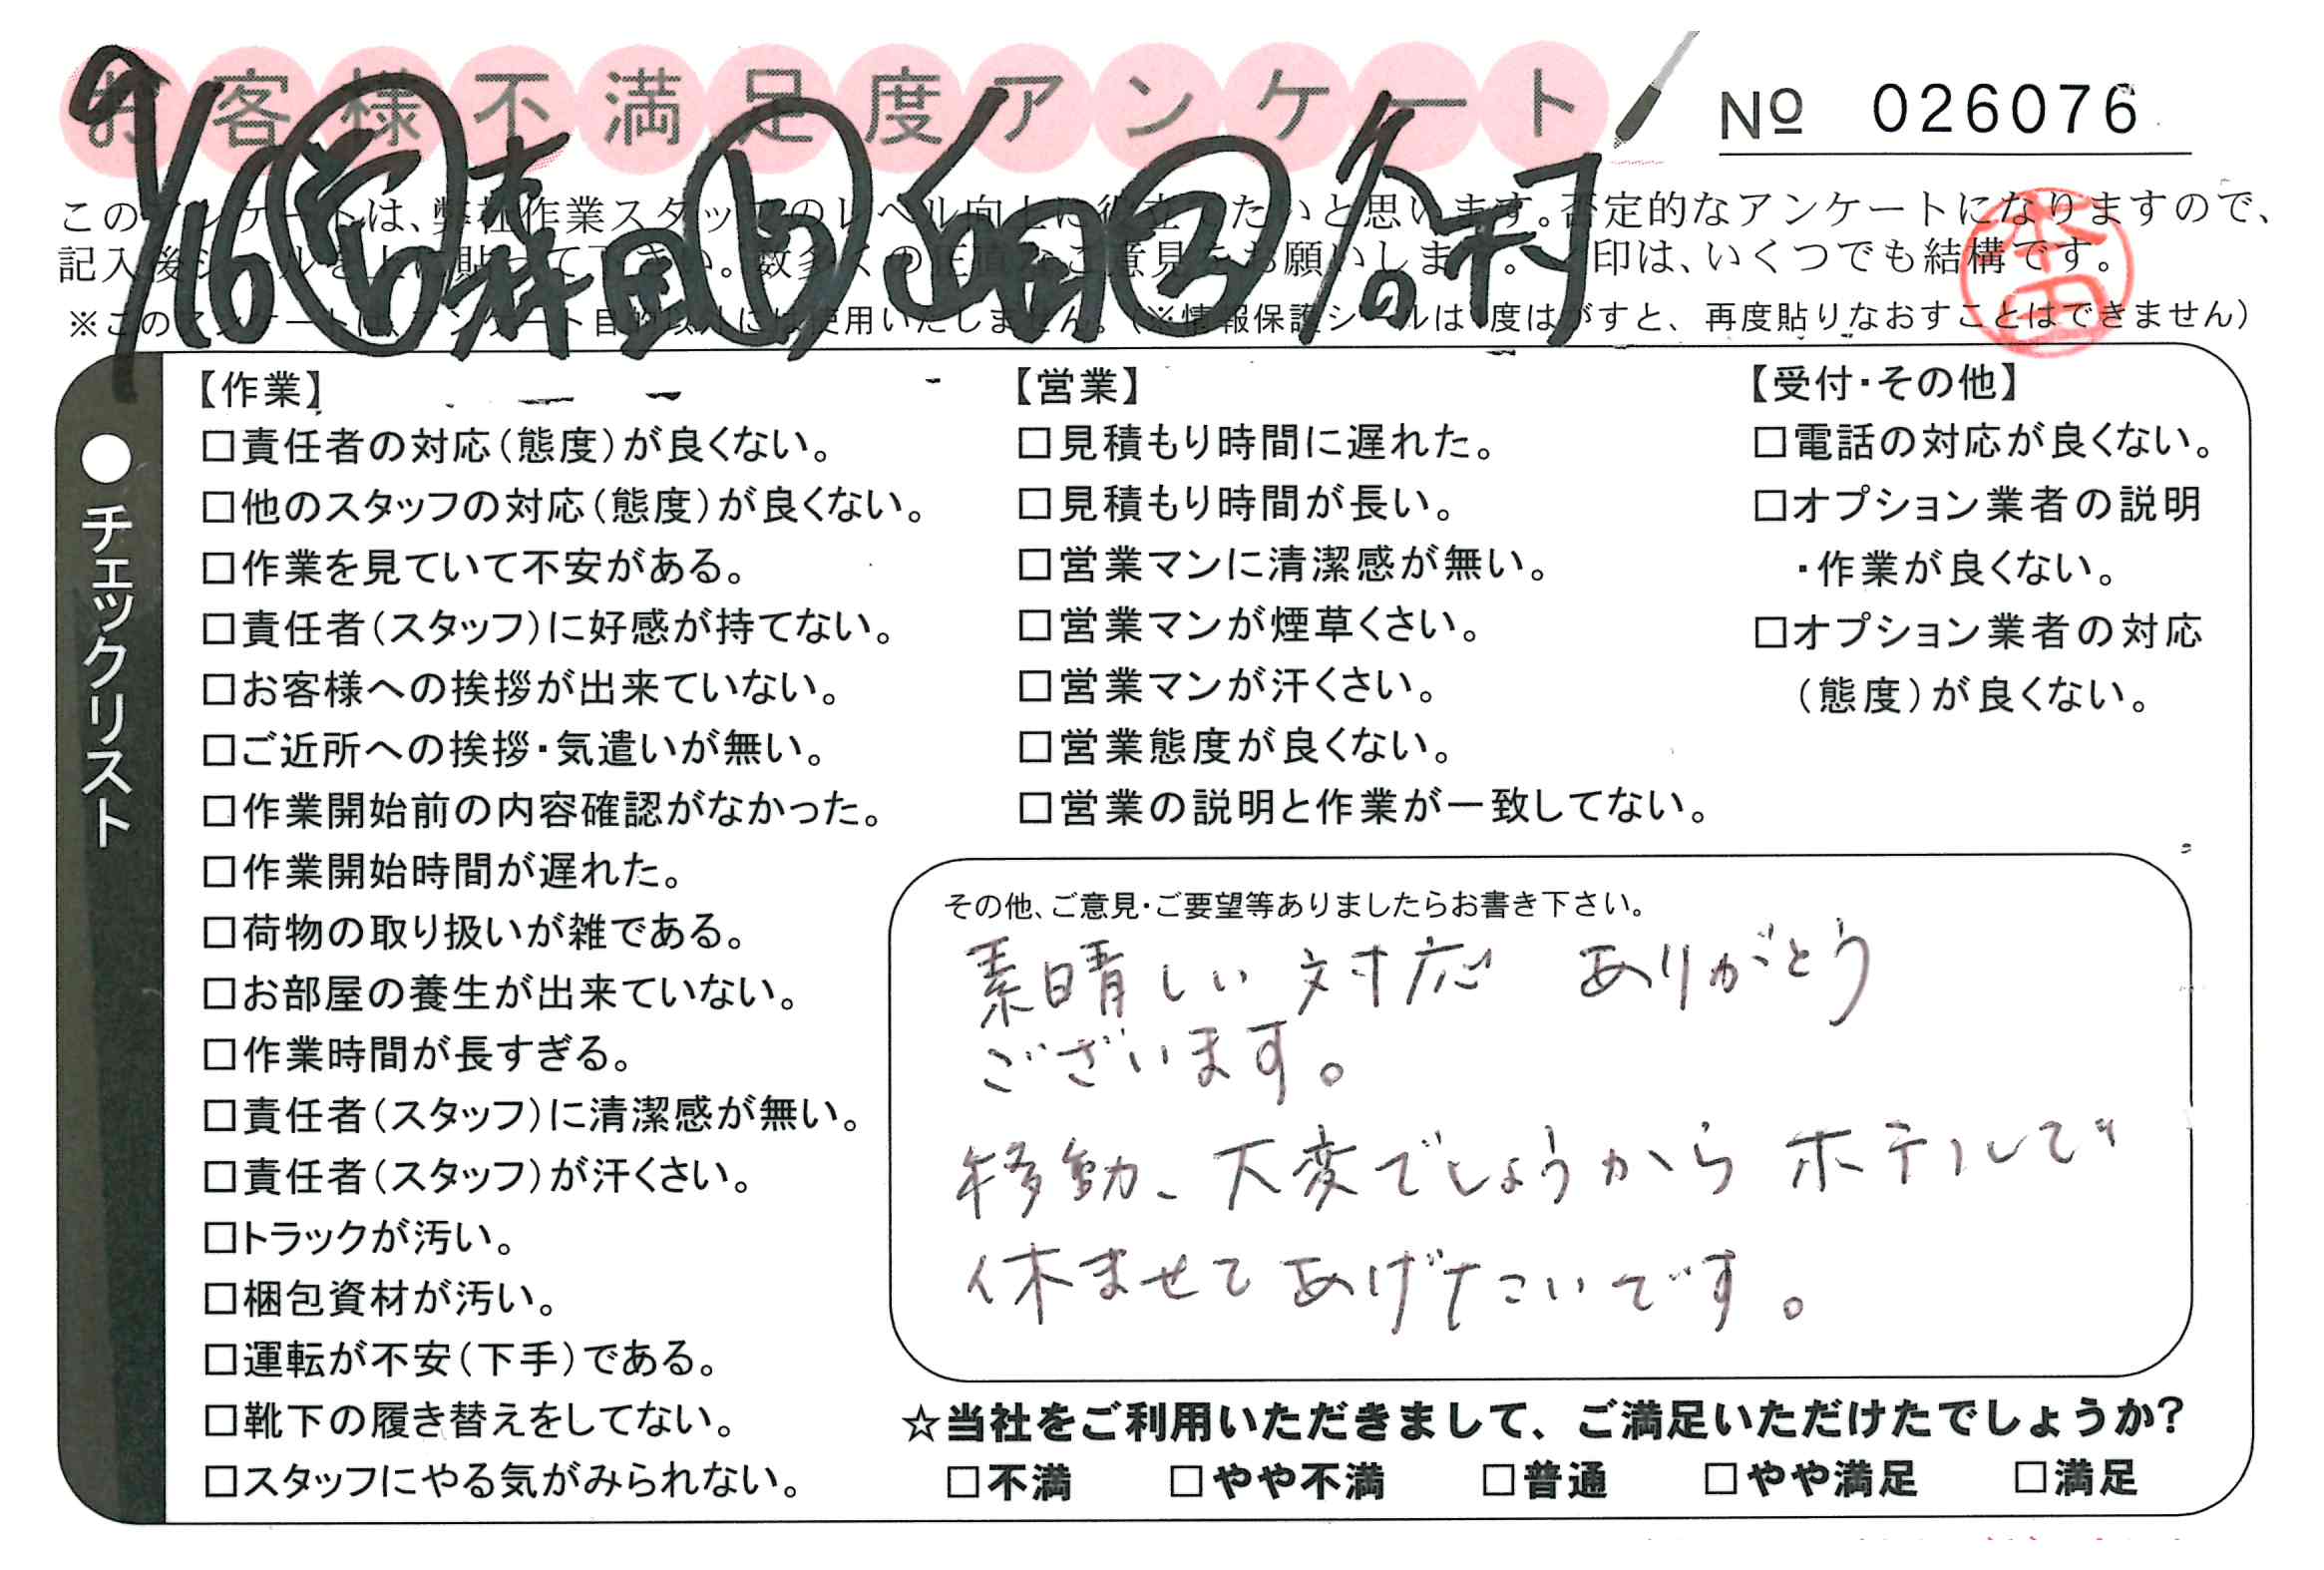 お客様不満足度アンケート
№ 026076
このアンケートは、弊社作業スタッフのレベル向上に役立てたいと思います。否定的なアンケートになりますので、
記入後シールを上に貼って下さい。数多くの正直なご意見をお願いします。 印は、いくつでも結構です。
※このアンケートは、アンケート目的以外には使用いたしません。(※情報保護シールは1度はがすと、再度貼りなおすことはできません)
9/16
●チェックリスト
【作業】
□責任者の対応(態度)が良くない。
□他のスタッフの対応(態度)が良くない。
□作業を見ていて不安がある。
□責任者(スタッフ)に好感が持てない。
□お客様への挨拶が出来ていない。
□ご近所への挨拶・気遣いが無い。
□作業開始前の内容確認がなかった。
□作業開始時間が遅れた。
□荷物の取り扱いが雑である。
□お部屋の養生が出来ていない。
□作業時間が長すぎる。
□責任者(スタッフ)に清潔感が無い。
□責任者(スタッフ)が汗くさい。
□トラックが汚い。
□梱包資材が汚い。
□運転が不安(下手)である。
□靴下の履き替えをしてない。
□スタッフにやる気がみられない。
【営業】
□見積もり時間に遅れた。
□見積もり時間が長い。
□営業マンに清潔感が無い。
□営業マンが煙草くさい。
□営業マンが汗くさい。
□営業態度が良くない。
□営業の説明と作業が一致してない。
【受付・その他】
□電話の対応が良くない。
□オプション業者の説明
・作業が良くない。
□オプション業者の対応
(態度)が良くない。
その他、ご意見・ご要望等ありましたらお書き下さい。
素晴しい対応 ありがとう
ございます。
移動、大変でしょうからホテルで
休ませてあげたいです。
☆当社をご利用いただきまして、ご満足いただけたでしょうか?
□不満 □やや不満 □普通 □やや満足 □満足